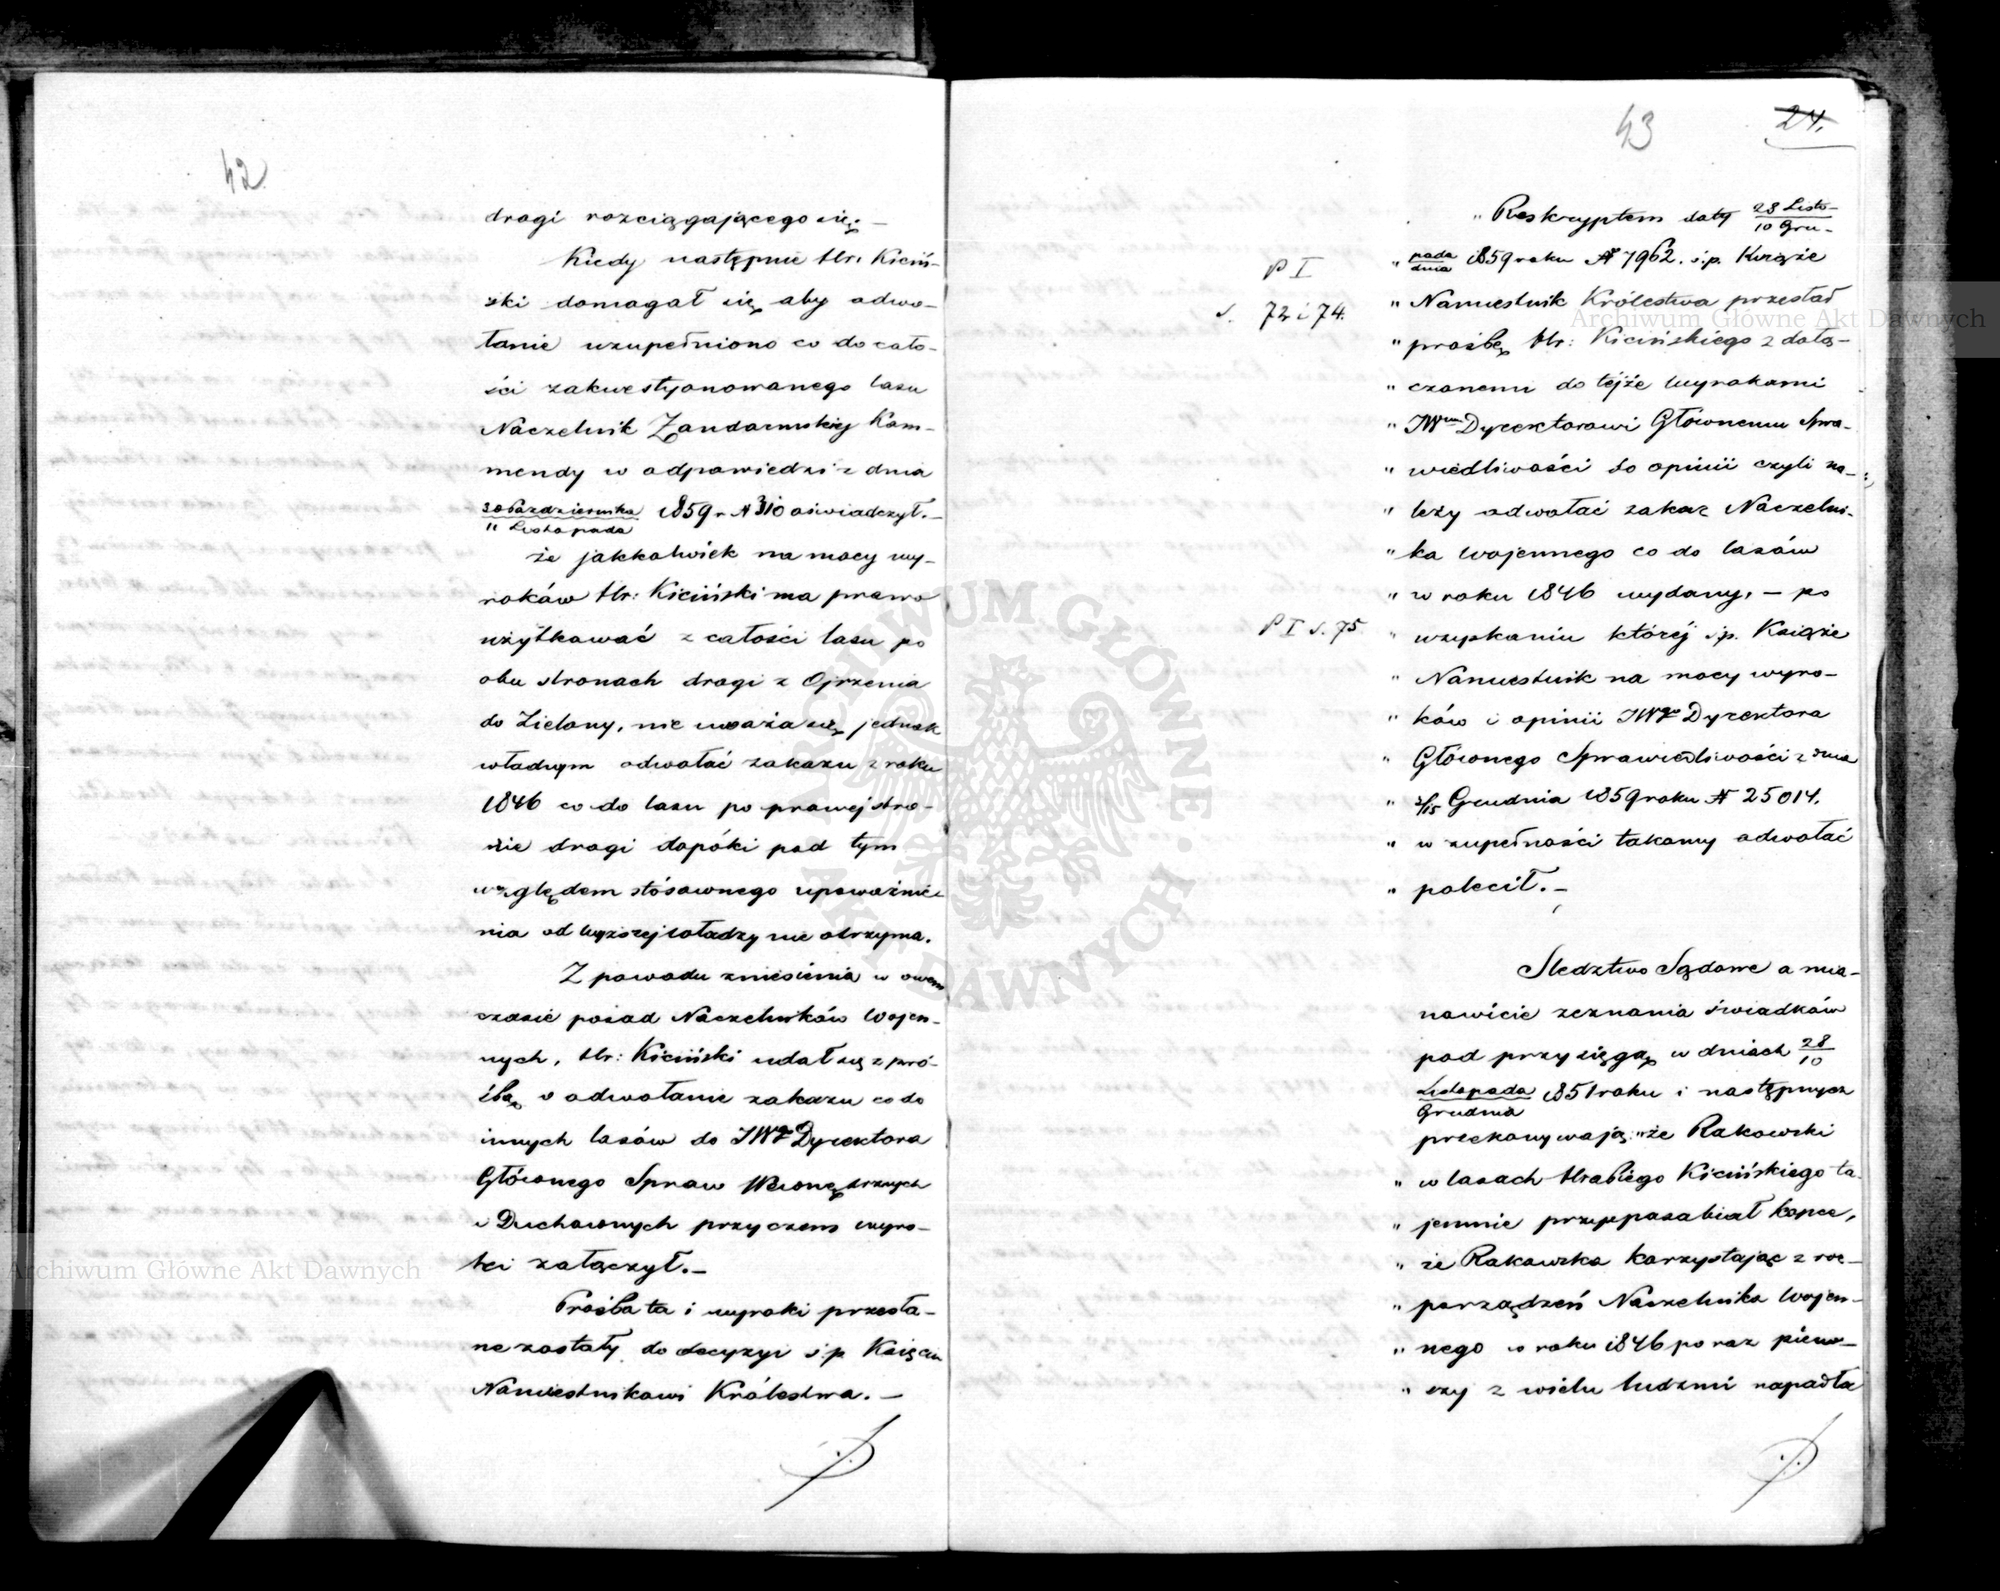 42
drogi rozciągającego się. —
Kiedy następnie Hr: Kiciń-
ski domagał się aby odwo-
łanie uzupełniono co do cało-
ści zakwestyonowanego lasu
Naczelnik Żandarmskiej Kom-
mendy w odpowiedzi z dnia
30 Października 1859 r N 310 oświadczył. —
11 Listopada
że jakkolwiek na mocy wy-
roków Hr: Kiciński ma prawo
użytkować z całości lasu po
obu stronach drogi z Ojrzenia
do Zielony, nie uważa się jednak
władnym odwołać zakazu z roku
1846 co do lasu po prawej stro-
nie drogi dopóki pod tym
względem stósownego upoważnie-
nia od wyższej władzy nie otrzyma.
Z powodu zniesienia w owem
czasie posad Naczelników Wojen-
nych, Hr: Kiciński udał się z pró-
śbą o odwołanie zakazu co do
innych lasów do JWgo Dyrektora
Głównego Spraw Wewnętrznych
i Duchownych przyczem wyro-
ki załączył. —
Prośba ta i wyroki przesła-
ne zostały do decyzyi ś.p. Księciu
Namiestnikowi Królestwa. —
43
24.
„ Reskryptem daty 28 Listo-
10 Gru-
„ pada 1859 roku N 7962. ś.p. Książe
dnia
P I
„ Namiestnik Królestwa przesłał
s. 72 i 74.
„ prośbę Hr: Kicińskiego z dołą-
„ czonemi do tejże wyrokami
„ JWmu Dyrektorowi Głównemu Spra-
„ wiedliwości do opinii czyli na-
„ leży odwołać zakaz Naczelni-
„ ka Wojennego co do lasów
„ w roku 1846 wydany, — po
P I s. 75
„ uzyskaniu której ś.p. Książe
„ Namiestnik na mocy wyro-
„ ków i opinii JWgo Dyrektora
„ Głównego Sprawiedliwości z dnia
„ 3/15 Grudnia 1859 roku N 25014.
„ w zupełności takowy odwołać
„ polecił. —
Śledztwo Sądowe a mia-
nowicie zeznania świadków
pod przysięgą w dniach 28
10
Listopada 1851 roku i następnych
Grudnia
przekonywają: „że Rakowski
„ w lasach Hrabiego Kicińskiego ta-
„ jemnie przysposabiał kopce,
„ że Rakowska korzystając z roz-
„ porządzeń Naczelnika Wojen-
„ nego w roku 1846 po raz pierw-
„ szy z wielu ludzmi napadła
Archiwum Główne Akt Dawnych
Archiwum Główne Akt Dawnych
ARCHIWUM GŁÓWNE AKT DAWNYCH